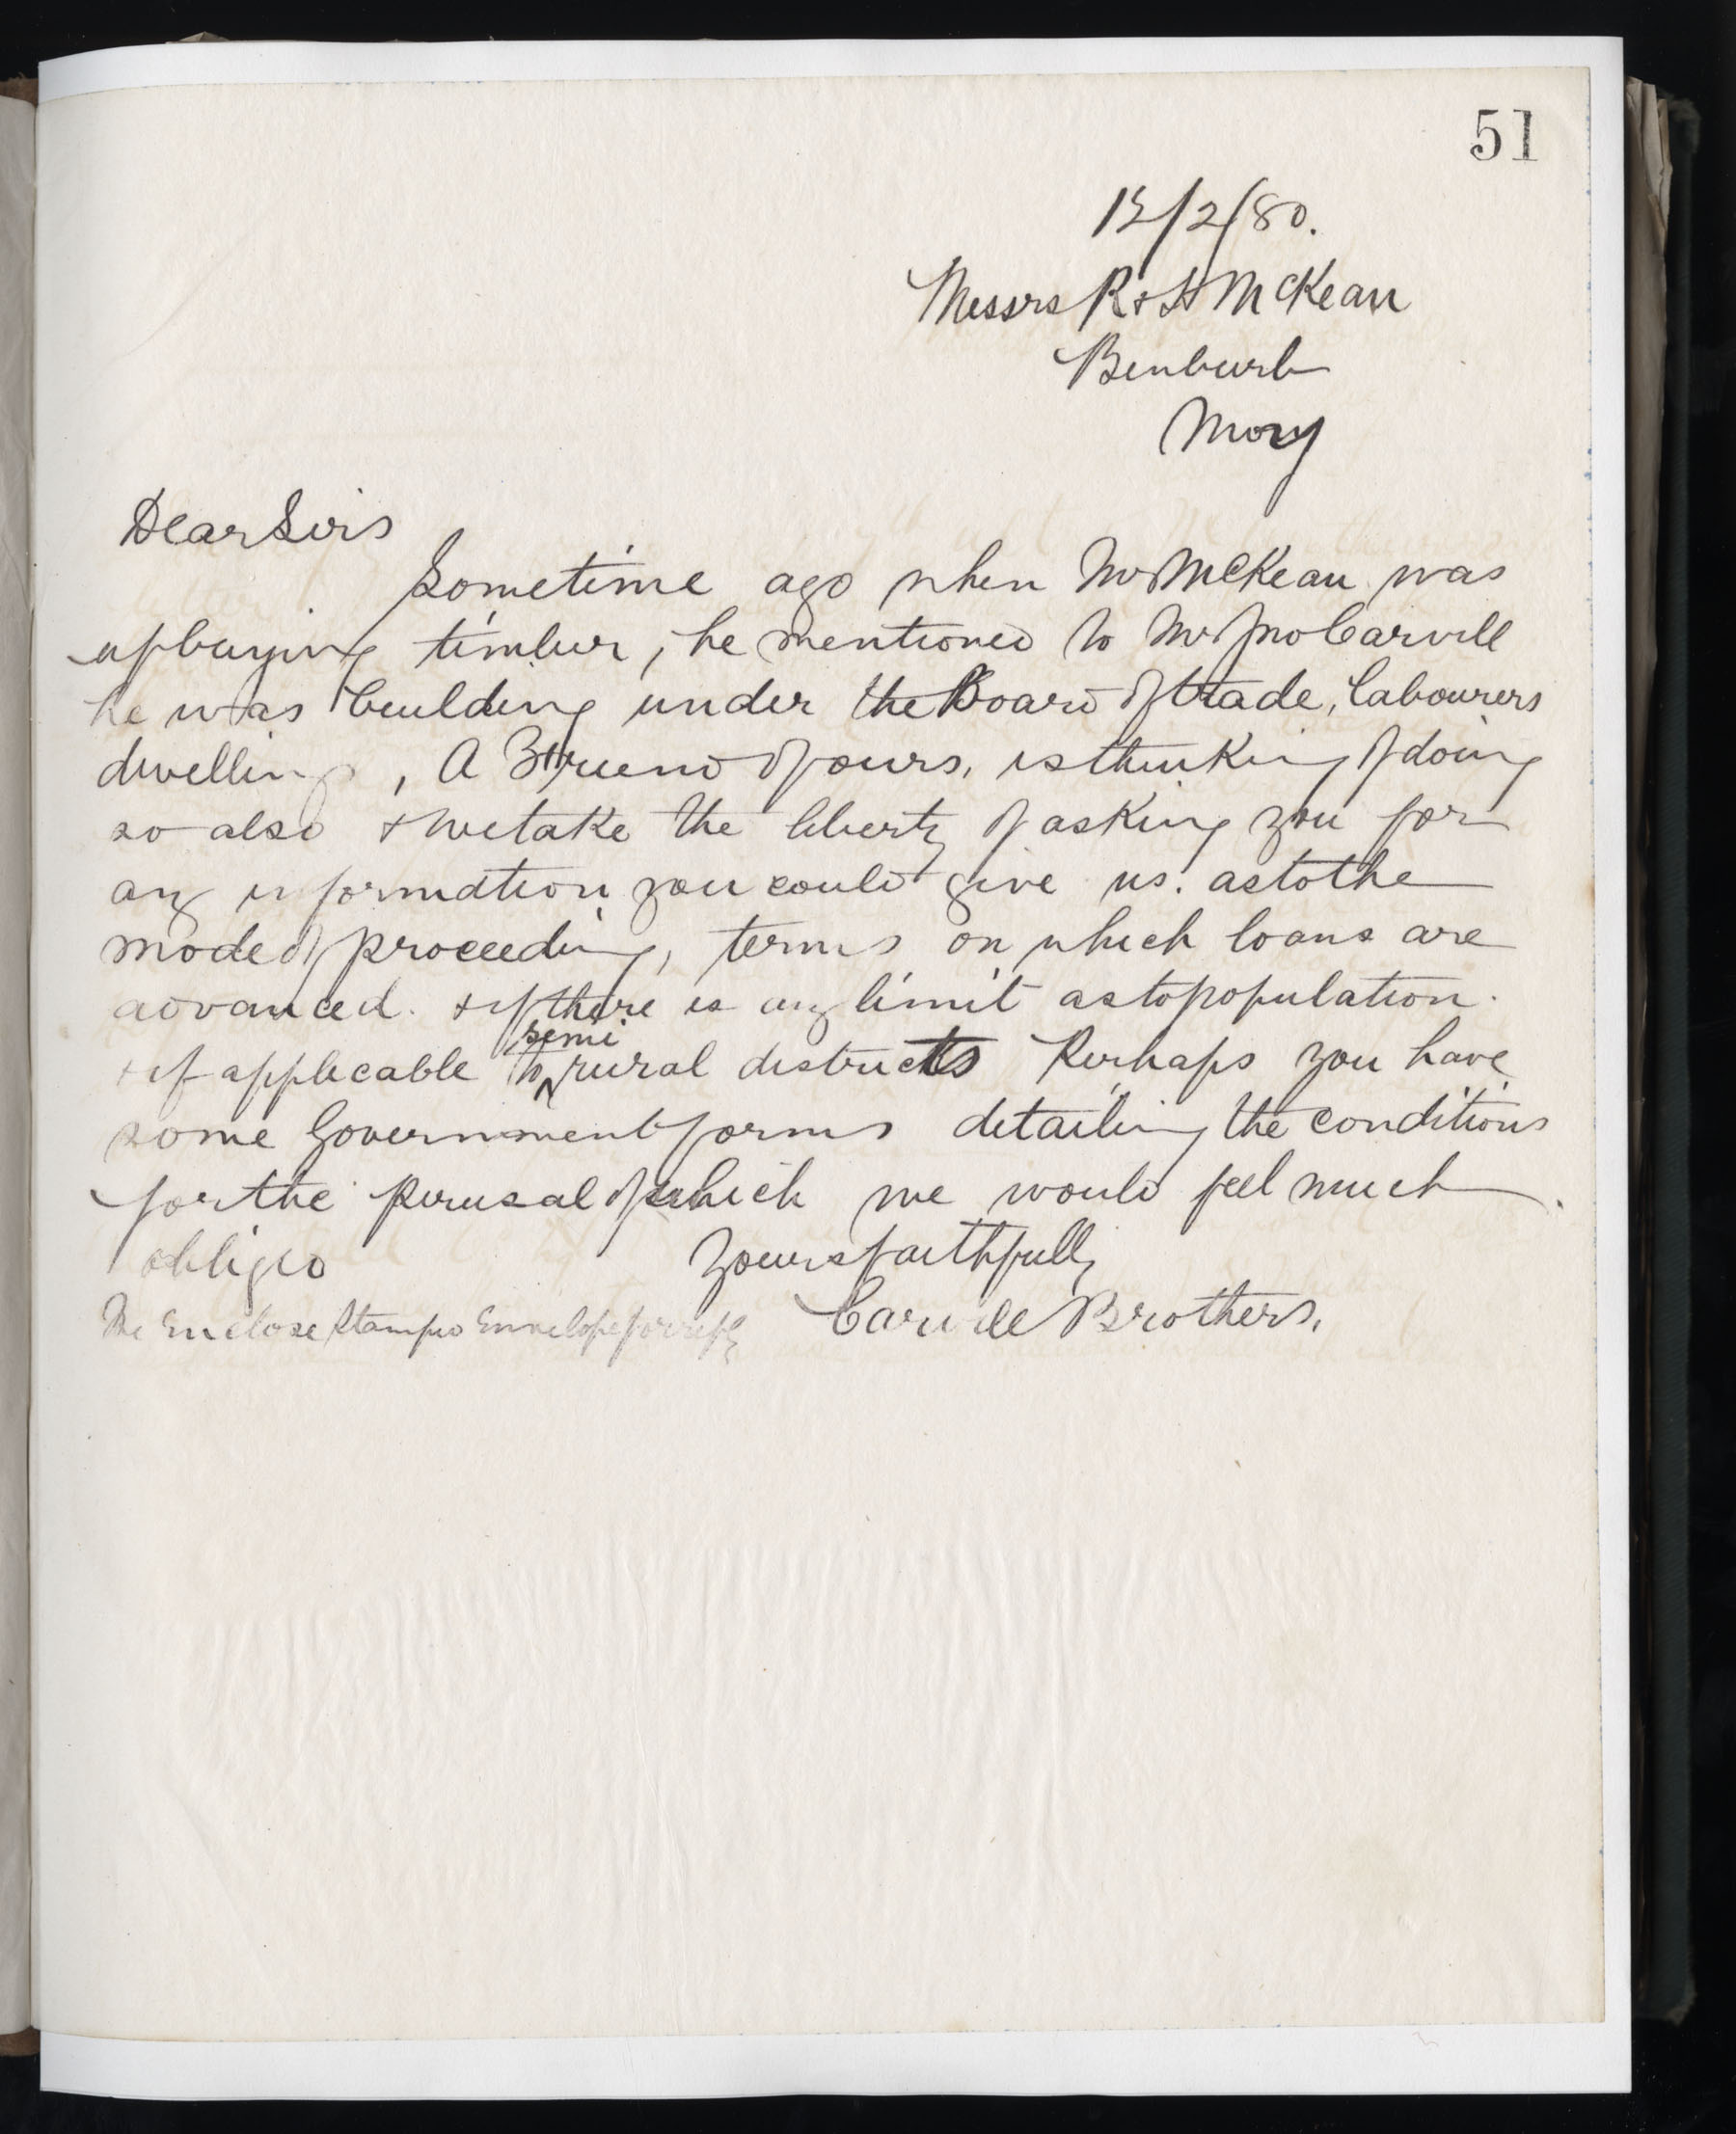 51
12/2/80.
Messrs R & H McKean
Benburb
Moy
Dear Sirs
Sometime ago when Mr McKean was
up buying timber, he mentioned to Mr Jno Carvill
he was building under the Board of trade, labourers
dwelling, A Friend of ours, is thinking of doing
so also & we take the liberty of asking you for
any information you could give us. as to the
mode of proceeding, terms on which loans are
advanced. & if there is any limit as to population.
& if applicable to semi rural districts Perhaps you have
some Government forms detailing the conditions
for the perusal of which we would feel much
obliged Yours faithfully
We Enclose Stamped Envelope for reply Carvill Brothers.